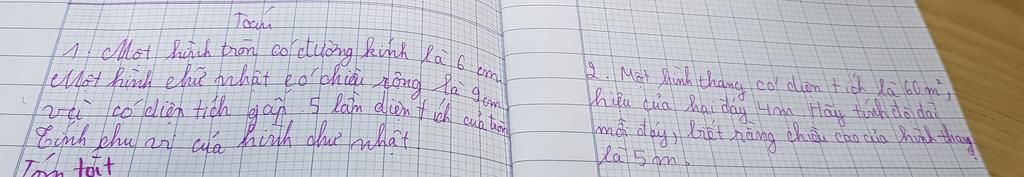 Toán
1. Một hình tròn có đường kính là 6 cm.
Một hình chữ nhật có chiều rộng là 9cm
và có diện tích gấp 5 lần diện tích của tròn
Tính chu vi của hình chữ nhật
Tóm tắt
2. Một hình thang có diện tích là 60 m²,
hiệu của hai đáy 4m. Hãy tính độ dài
mỗi đáy, biết rằng chiều cao của hình thang
là 5 m.